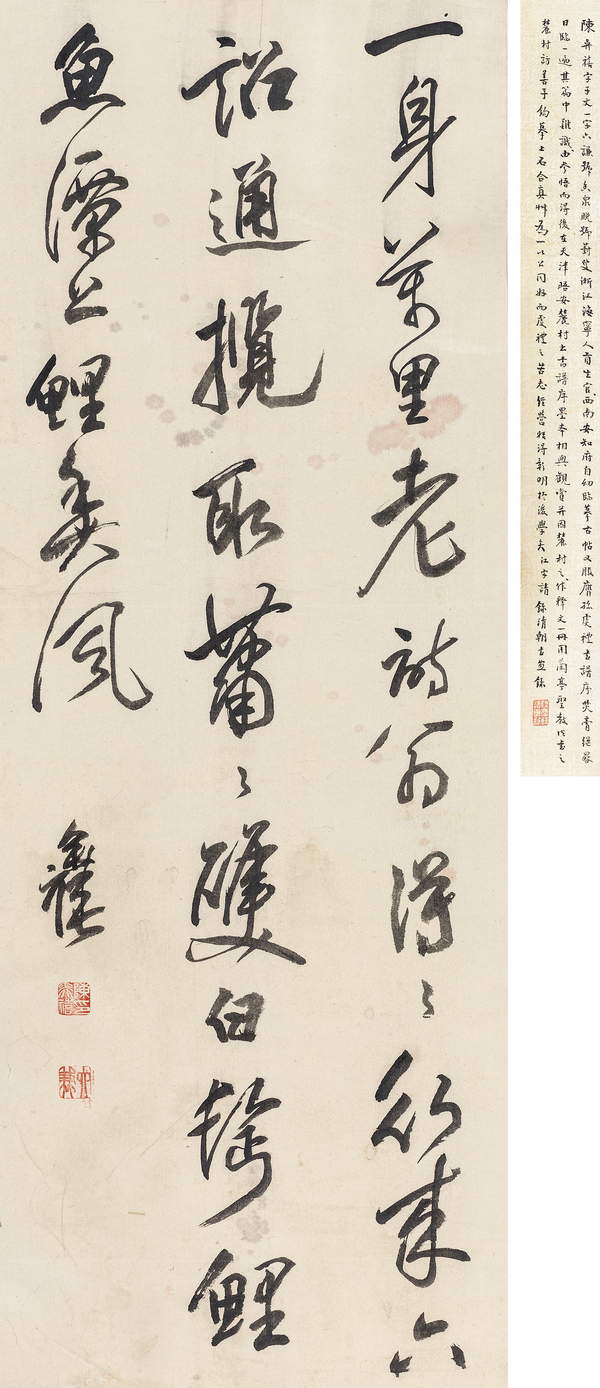 陳奕禧字子文一字六謙號香泉晚號葑叟浙江海寧人貢生官西南安知府自幼臨摹古帖又服膺孫虔禮書譜序焚膏继晷
日臨一過其篇中難識由參悟而得後在天津晤安麓村出書譜序墨本相與觀賞并因麓村之作釋文一冊用蘭亭聖教作書之
麓村訪善手鈎摹上石合真艸為一以公同好而虔禮之苦志經營頓得彰明於後學 清朝書画錄
一身萬里老詩翁得々行來六
詔通攬取蕭々雙白鬢鯉
魚潭上鯉魚風
奕禧
陳印奕禧
六謙